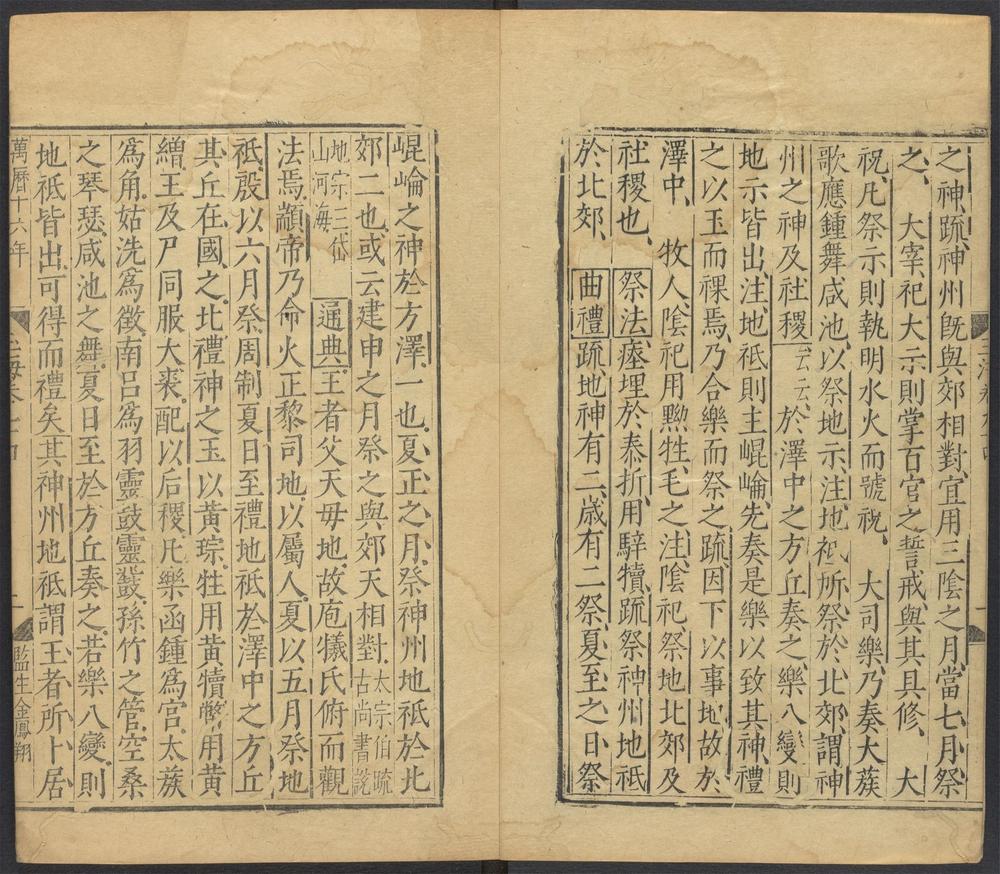 之神疏神州旣與郊相對宜用三陰之月當七月祭
之　大宰祀大示則掌百官之誓戒與其具修　大
祝凡祭示則執明水火而號祝　大司樂乃奏大蔟
歌應鍾舞咸池以祭地示注地祇所祭於北郊謂神
州之神及社稷云云於澤中之方丘奏之樂八變則
地示皆出注地祇則主崐崘先奏是樂以致其神禮
之以玉而祼焉乃合樂而祭之疏因下以事地故於
澤中　牧人陰祀用黝牲毛之注陰祀祭地北郊及
社稷也　祭法瘞埋於泰折用騂犢疏祭神州地祇
於北郊　曲禮疏地神有二歲有二祭夏至之日祭
崐崘之神於方澤一也夏正之月祭神州地祇於北
郊二也或云建申之月祭之與郊天相對太宗伯疏古尚書說
地宗三岱山河海　通典王者父天母地故庖犧氏俯而觀
法焉顓帝乃命火正黎司地以屬人夏以五月祭地
祇殷以六月祭周制夏日至禮地祇於澤中之方丘
其丘在國之北禮神之玉以黃琮牲用黃犢幣用黃
繒王及尸同服大裘配以后稷凡樂函鍾爲宮太蔟
爲角姑洗爲徵南呂爲羽靈鼓靈鼗孫竹之管空桑
之琴瑟咸池之舞夏日至於方丘奏之若樂八變則
地祇皆出可得而禮矣其神州地祇謂王者所卜居
萬曆十六年　玉海卷九十四　一　監生金鳳翔